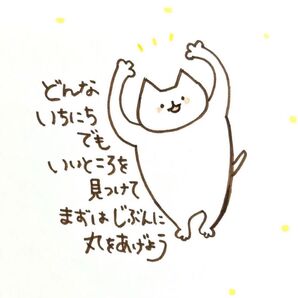 どんな
いちにち
でも
いいところを
見つけて
まずはじぶんに
丸をあげよう